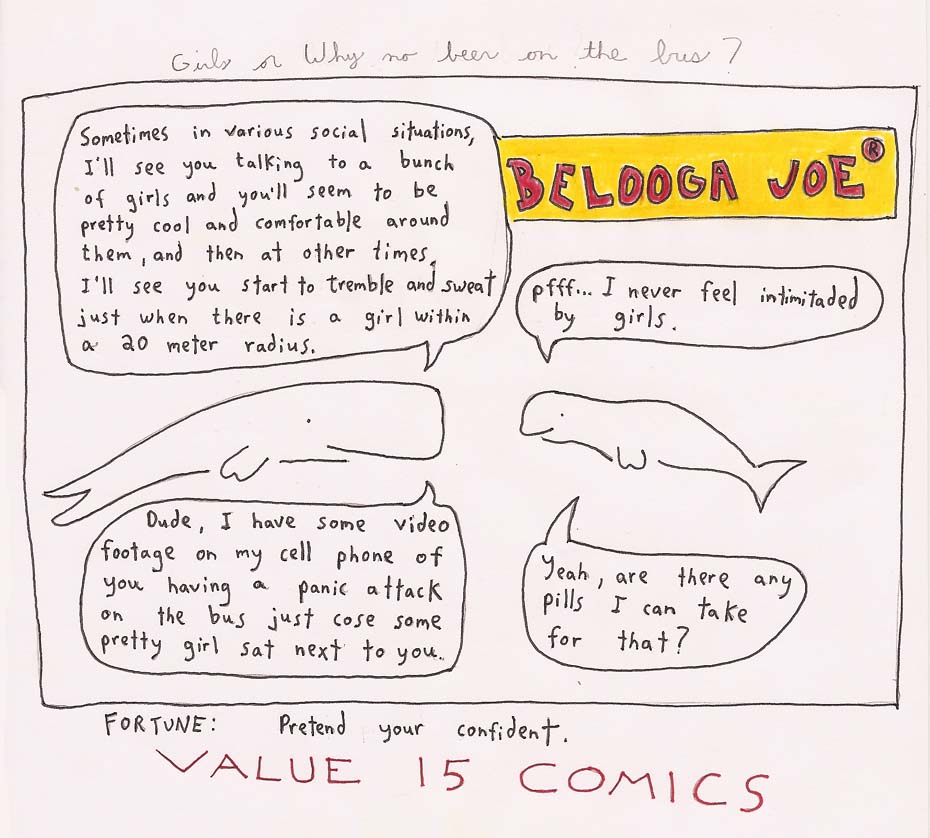 Girls or Why no beer on the bus?
Sometimes in various social situations,
I'll see you talking to a bunch
of girls and you'll seem to be
pretty cool and comfortable around
them, and then at other times,
I'll see you start to tremble and sweat
just when there is a girl within
a 20 meter radius.
BELOOGA JOE®
pfff... I never feel intimitaded
by girls.
Dude, I have some video
footage on my cell phone of
you having a panic attack
on the bus just cose some
pretty girl sat next to you.
Yeah, are there any
pills I can take
for that?
FORTUNE: Pretend your confident.
VALUE 15 COMICS